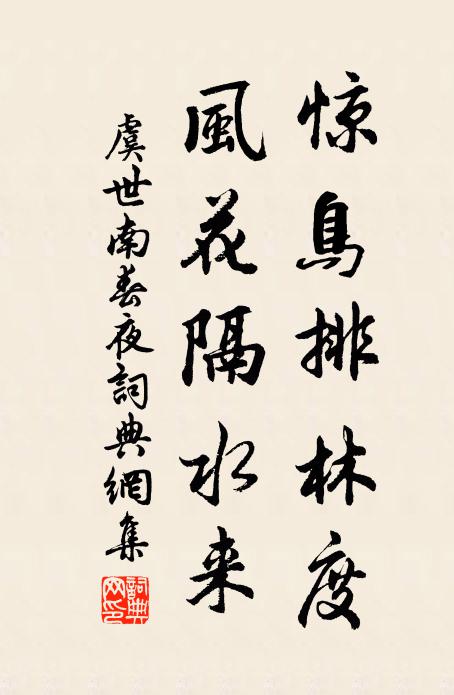 惊鳥排林度
風花隔水来
虞世南春夜詞典網集
詞典
网印